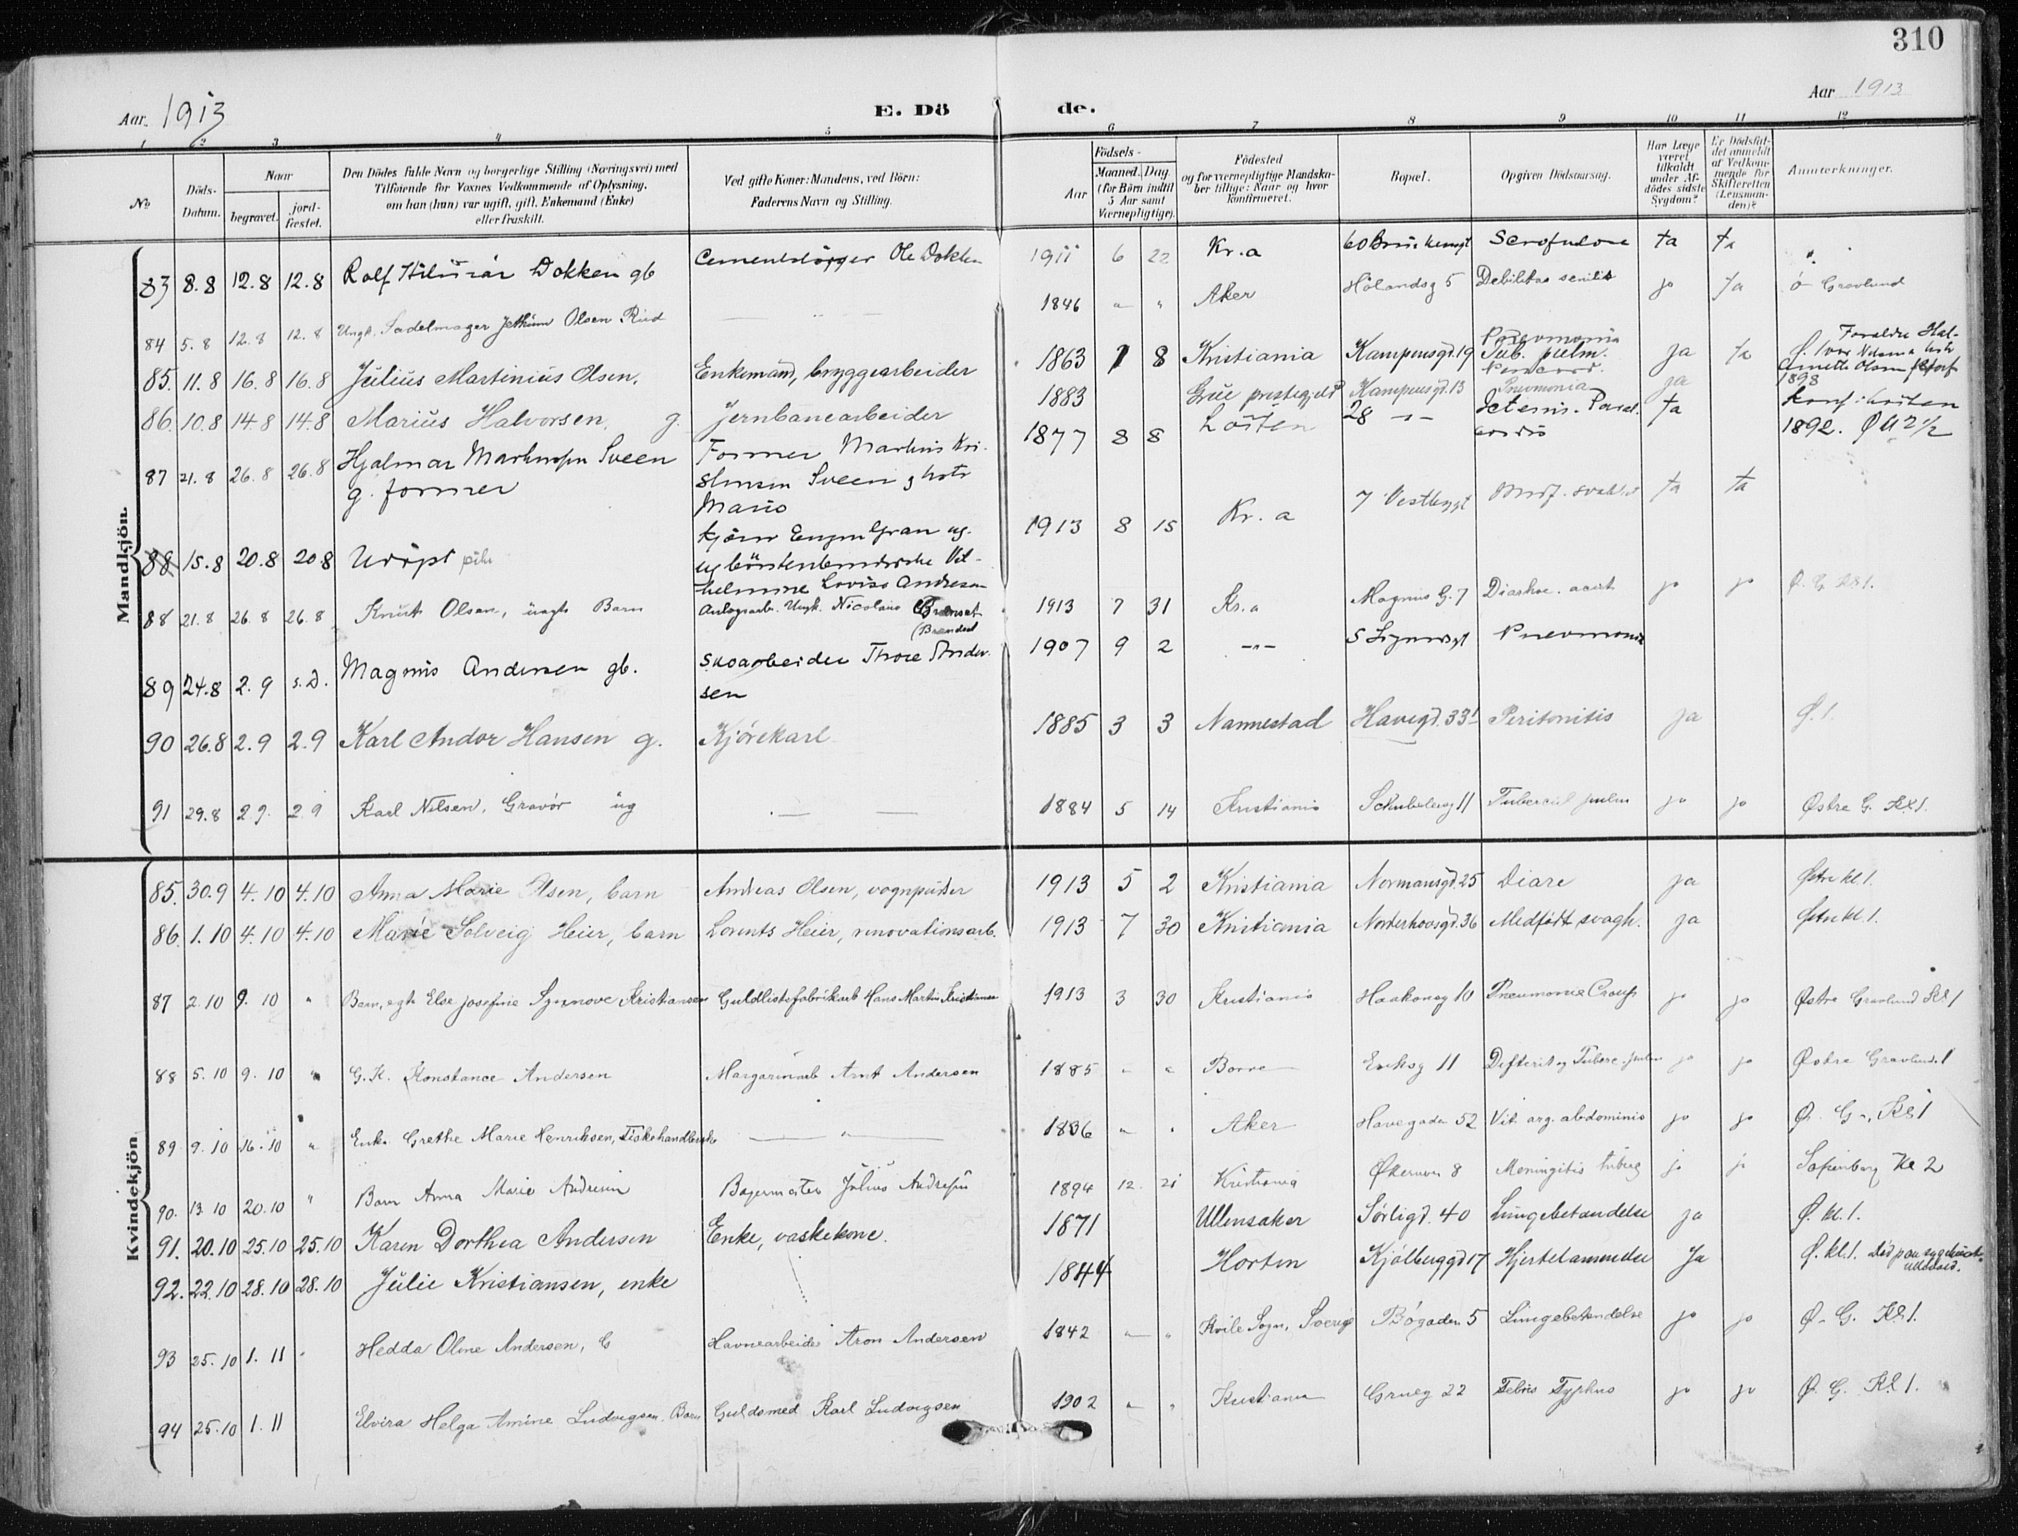 310
Aar. 1913
E. Dö de.
Aar 1913
1 2 3 4 5 6 7 8 9 10 11 12
No.
Döds-Datum.
Naar
begravet.
jord-fæstet.
Den Dödes fulde Navn og borgerlige Stilling (Næringsvei) med
Tilföiende for Voxnes Vedkommende af Oplysning,
om han (hun) var ugift, gift, Enkemand (Enke)
eller fraskilt.
Ved gifte Koner: Mandens, ved Börn:
Faderens Navn og Stilling.
Födsels-
Aar
Maaned. Dag.
(for Börn indtil
5 Aar samt
Værnepligtige).
Födested
og for værnepligtige Mandska-
ber tillige: Naar og hvor
konfirmeret.
Bopæl.
Opgiven Dödsaarsag.
Har Læge
været
tilkaldt
under Af-
dödes sidste
Sygdom?
Er Dödsfal-
det anmeldt
af Vedkom-
mende for
Skifteretten
(Lensman-
den)?
Anmærkninger.
Mandkjön.
83 8.8 12.8 12.8 Rolf Dokken gb Ole Dokken 1911 6 22 Kr.a Scrofulose Ja Ja
84 5.8 12.8 12.8 Ungk. Sadelmager Olsen Rud 1846 " " Aker Hölandsg 5 Debilitas senilis jo Ja Ö Gravlund
85. 11.8 16.8 16.8 Julius Martinius Olsen, Enkemand, bryggearbeider 1863 1 8 Kristiania Kampensgd. 19 Tub. pulm. Ja Ja
86. 10.8 14.8 14.8 Marius Halvorsen, g. Jernbanearbeider 1883 Grue prestegjeld Kampensgd. 13 Pneumonia Ja 1898
87 21.8 26.8 26.8 Hjalmar Sveen
g. former
Former Martinus Kri-
Sveen
1877 8 8 Löiten 28 -"- Ja 1892.
88 15.8 20.8 20.8 1913 8 15 Kr.a Ja Ja
88 21.8 26.8 26.8 Knut Olsen, uægte Barn Ungk. Nicolaus 1913 7 31 Kr.a Magnus G. 7 jo jo
89 24.8 2.9 s.D. Magnus Andersen gb. Skoarbeider Thore Ander-
sen
1907 9 2 -"- Pneumonia
90 26.8 2.9 2.9 Karl Andor Hansen g. Kjörekarl 1885 3 3 Nannestad Havegd. 33 Peritonitis Ja Ø. 1.
91 29.8 2.9. 2.9 Karl Nilsen, Gravör ug 1884 5 14 Kristiania Schubelersg 11 Tubercul pulm jo jo Østre G. Kl 1.
Kvindekjön.
85. 30.9 4.10 4.10 Anna Marie Olsen, barn Andreas Olsen, vognpudser 1913 5 2 Kristiania Normansgd. 25 Diare Ja Østre kl. 1.
86. 1.10 4.10 4.10 Marie Solveig Heier, barn Lorents Heier, renovationsarb. 1913 7 30 Kristiania Norderhovsgd. 36 Medfödt svagh. Ja Østre kl. 1.
87 2.10 9.10 " Barn, egte Else Josefine Synnove Kristiansen Guldlistefabrikarb Hans Martin Kristiansen 1913 3 30 Kristiania Haakonsg 10 Pneumonie Croup jo jo Østre Gravlund Kl 1
88 5.10 9.10 " G. K. Konstance Andersen Margarinarb Arnt Andersen 1885 " " Borre Eriksg 11 Defterit og Tuberc. pulm jo jo Østre Gravlund. 1
89 9.10 16.10 " Enke Grethe Marie Henriksen, Fiskehandlerske 1836 " " Aker Havegaden 52 Vit. org. abdominis jo jo Ø. G., Kl 1
90. 13.10 20.10 " Barn Anna Marie Andresen Bagermester Julius Andresen 1894 12 21 Kristiania Økernvn 8 Meningitis tuberc jo jo Sofienberg Kl 2
91. 20.10 25.10 25.10 Karen Dorthea Andersen Enke, vaskekone. 1871 Ullensaker Sörligd. 40 Lungebetændelse Ja Ø. kl. 1.
92. 22.10 28.10 28.10 Julie Kristiansen, enke 1844 Horten Kjölberggd 17 Hjertelammelse Ja Ø. kl. 1.
93 25.10 1.11 Hedda Oline Andersen, G Havnearbeider Aron Andersen 1842 " " Kville Sogn, Sverige Bögaden 5 Lungebetændelse jo jo Ø. G. Kl 1.
94 25.10 1.11 Elvira Helga Amine Ludvigsen, Barn Guldsmed Karl Ludvigsen 1902 " " Kristiania Grueg 22 Febris Typhus jo jo Ø. G. Kl. 1.